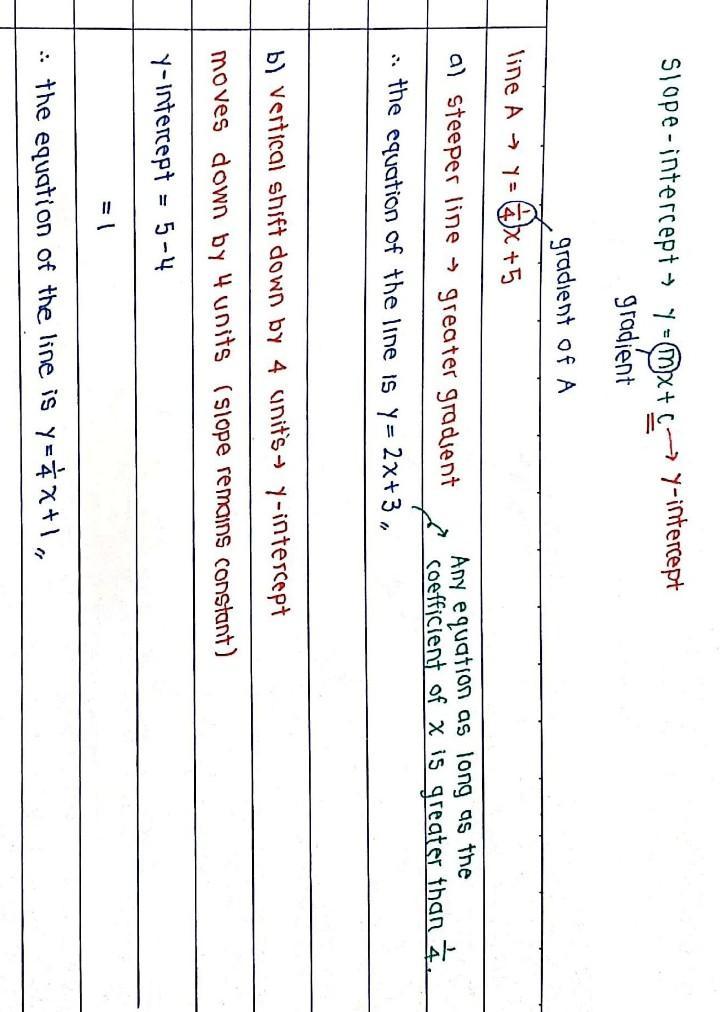 Slope-intercept → y = mx + c → y-intercept
gradient
gradient of A
line A → y = 1/4x + 5
a) steeper line → greater gradient
Any equation as long as the
coefficient of x is greater than 1/4.
∴ the equation of the line is y = 2x+3 〃
b) vertical shift down by 4 units → y-intercept
moves down by 4 units (slope remains constant)
y-intercept = 5-4
= 1
∴ the equation of the line is y = 1/4x + 1 〃